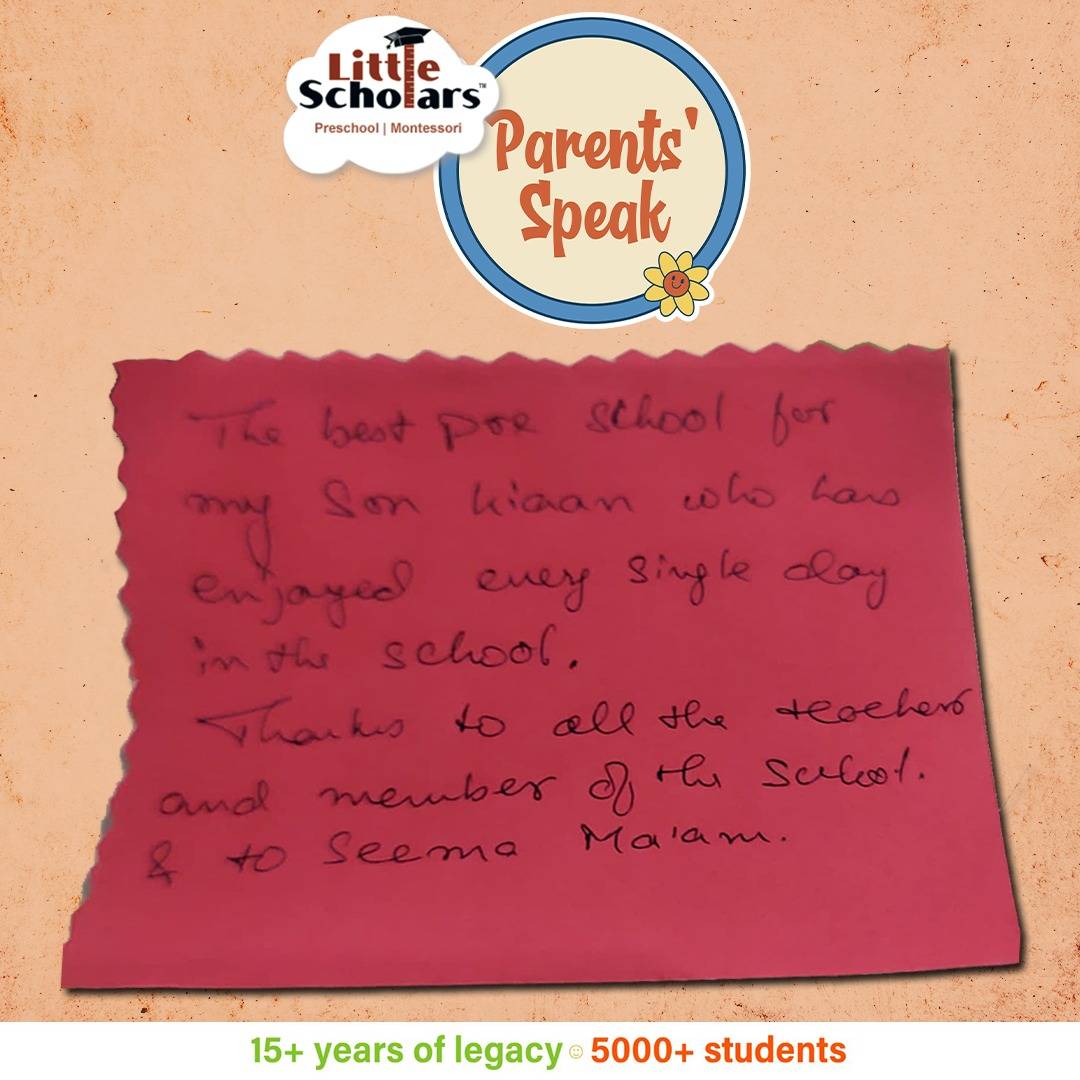 Little
Scholars™
Preschool | Montessori
Parents'
Speak
The best pre school for
my Son kiaan who has
enjoyed every single day
in the school.
Thanks to all the teachers
and member of the School.
& to Seema Ma'am.
15+ years of legacy 5000+ students